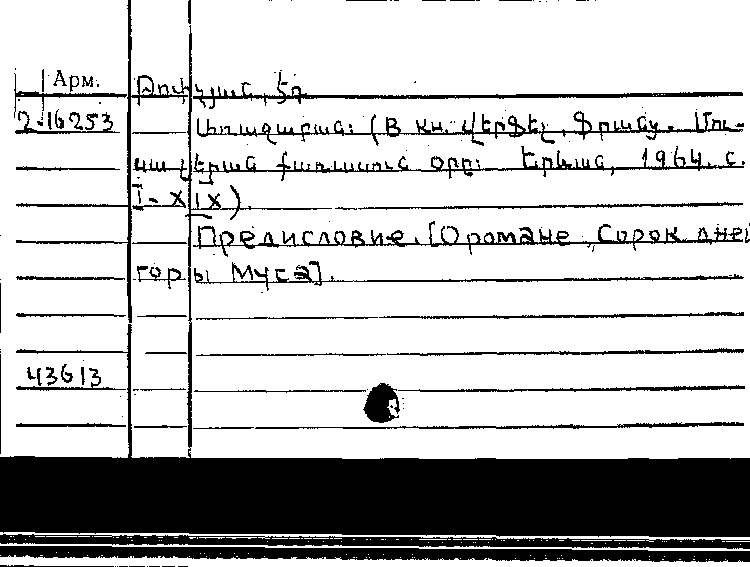 Арм.
Թոփչյան, Էդ.
2-16253
Առաջաբան: (В кн. Վերֆել, Ֆրանց. Մու-
սա լերան քառասուն օրը: Երևան, 1964. с.
I-XIX).
Предисловие. [О романе „Сорок дней
горы Муса].
43613